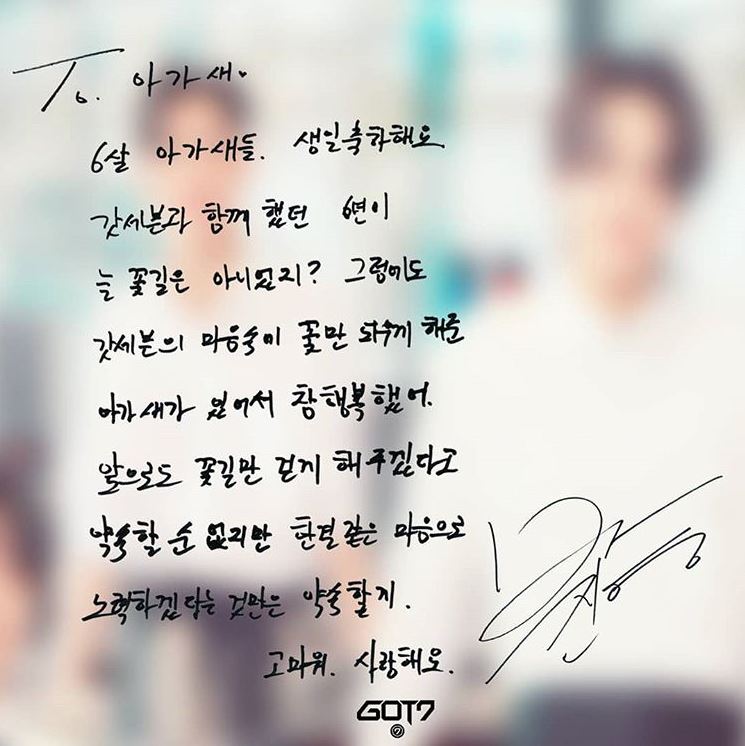 To. 아가새.
6살 아가새들. 생일축하해요
갓세븐과 함께 했던 6년이
늘 꽃길은 아니었지? 그럼에도
갓세븐의 마음속이 꽃만 피우게 해준
아가새가 있어서 참 행복했어.
앞으로도 꽃길만 걷게 해주겠다고
약속할 순 없지만 한결같은 마음으로
노력하겠다는 것만은 약속할게.
고마워. 사랑해요.
GOT7